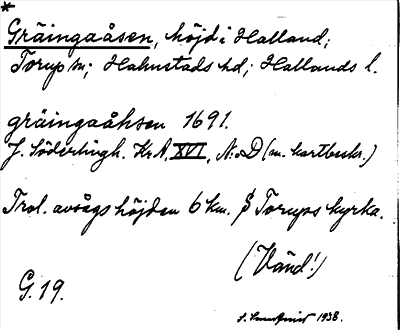 *
Gräingaåsen, höjd i Halland;
Torup sn; Halmstads hd; Hallands l.
gräingaåhsen 1691.
J. Söderlingh. KrA, XVI, N:o D (m. kartbeskr.)
Trol. avsågs höjden 6 km. S Torups kyrka.
(Vänd!)
G. 19.
1938.